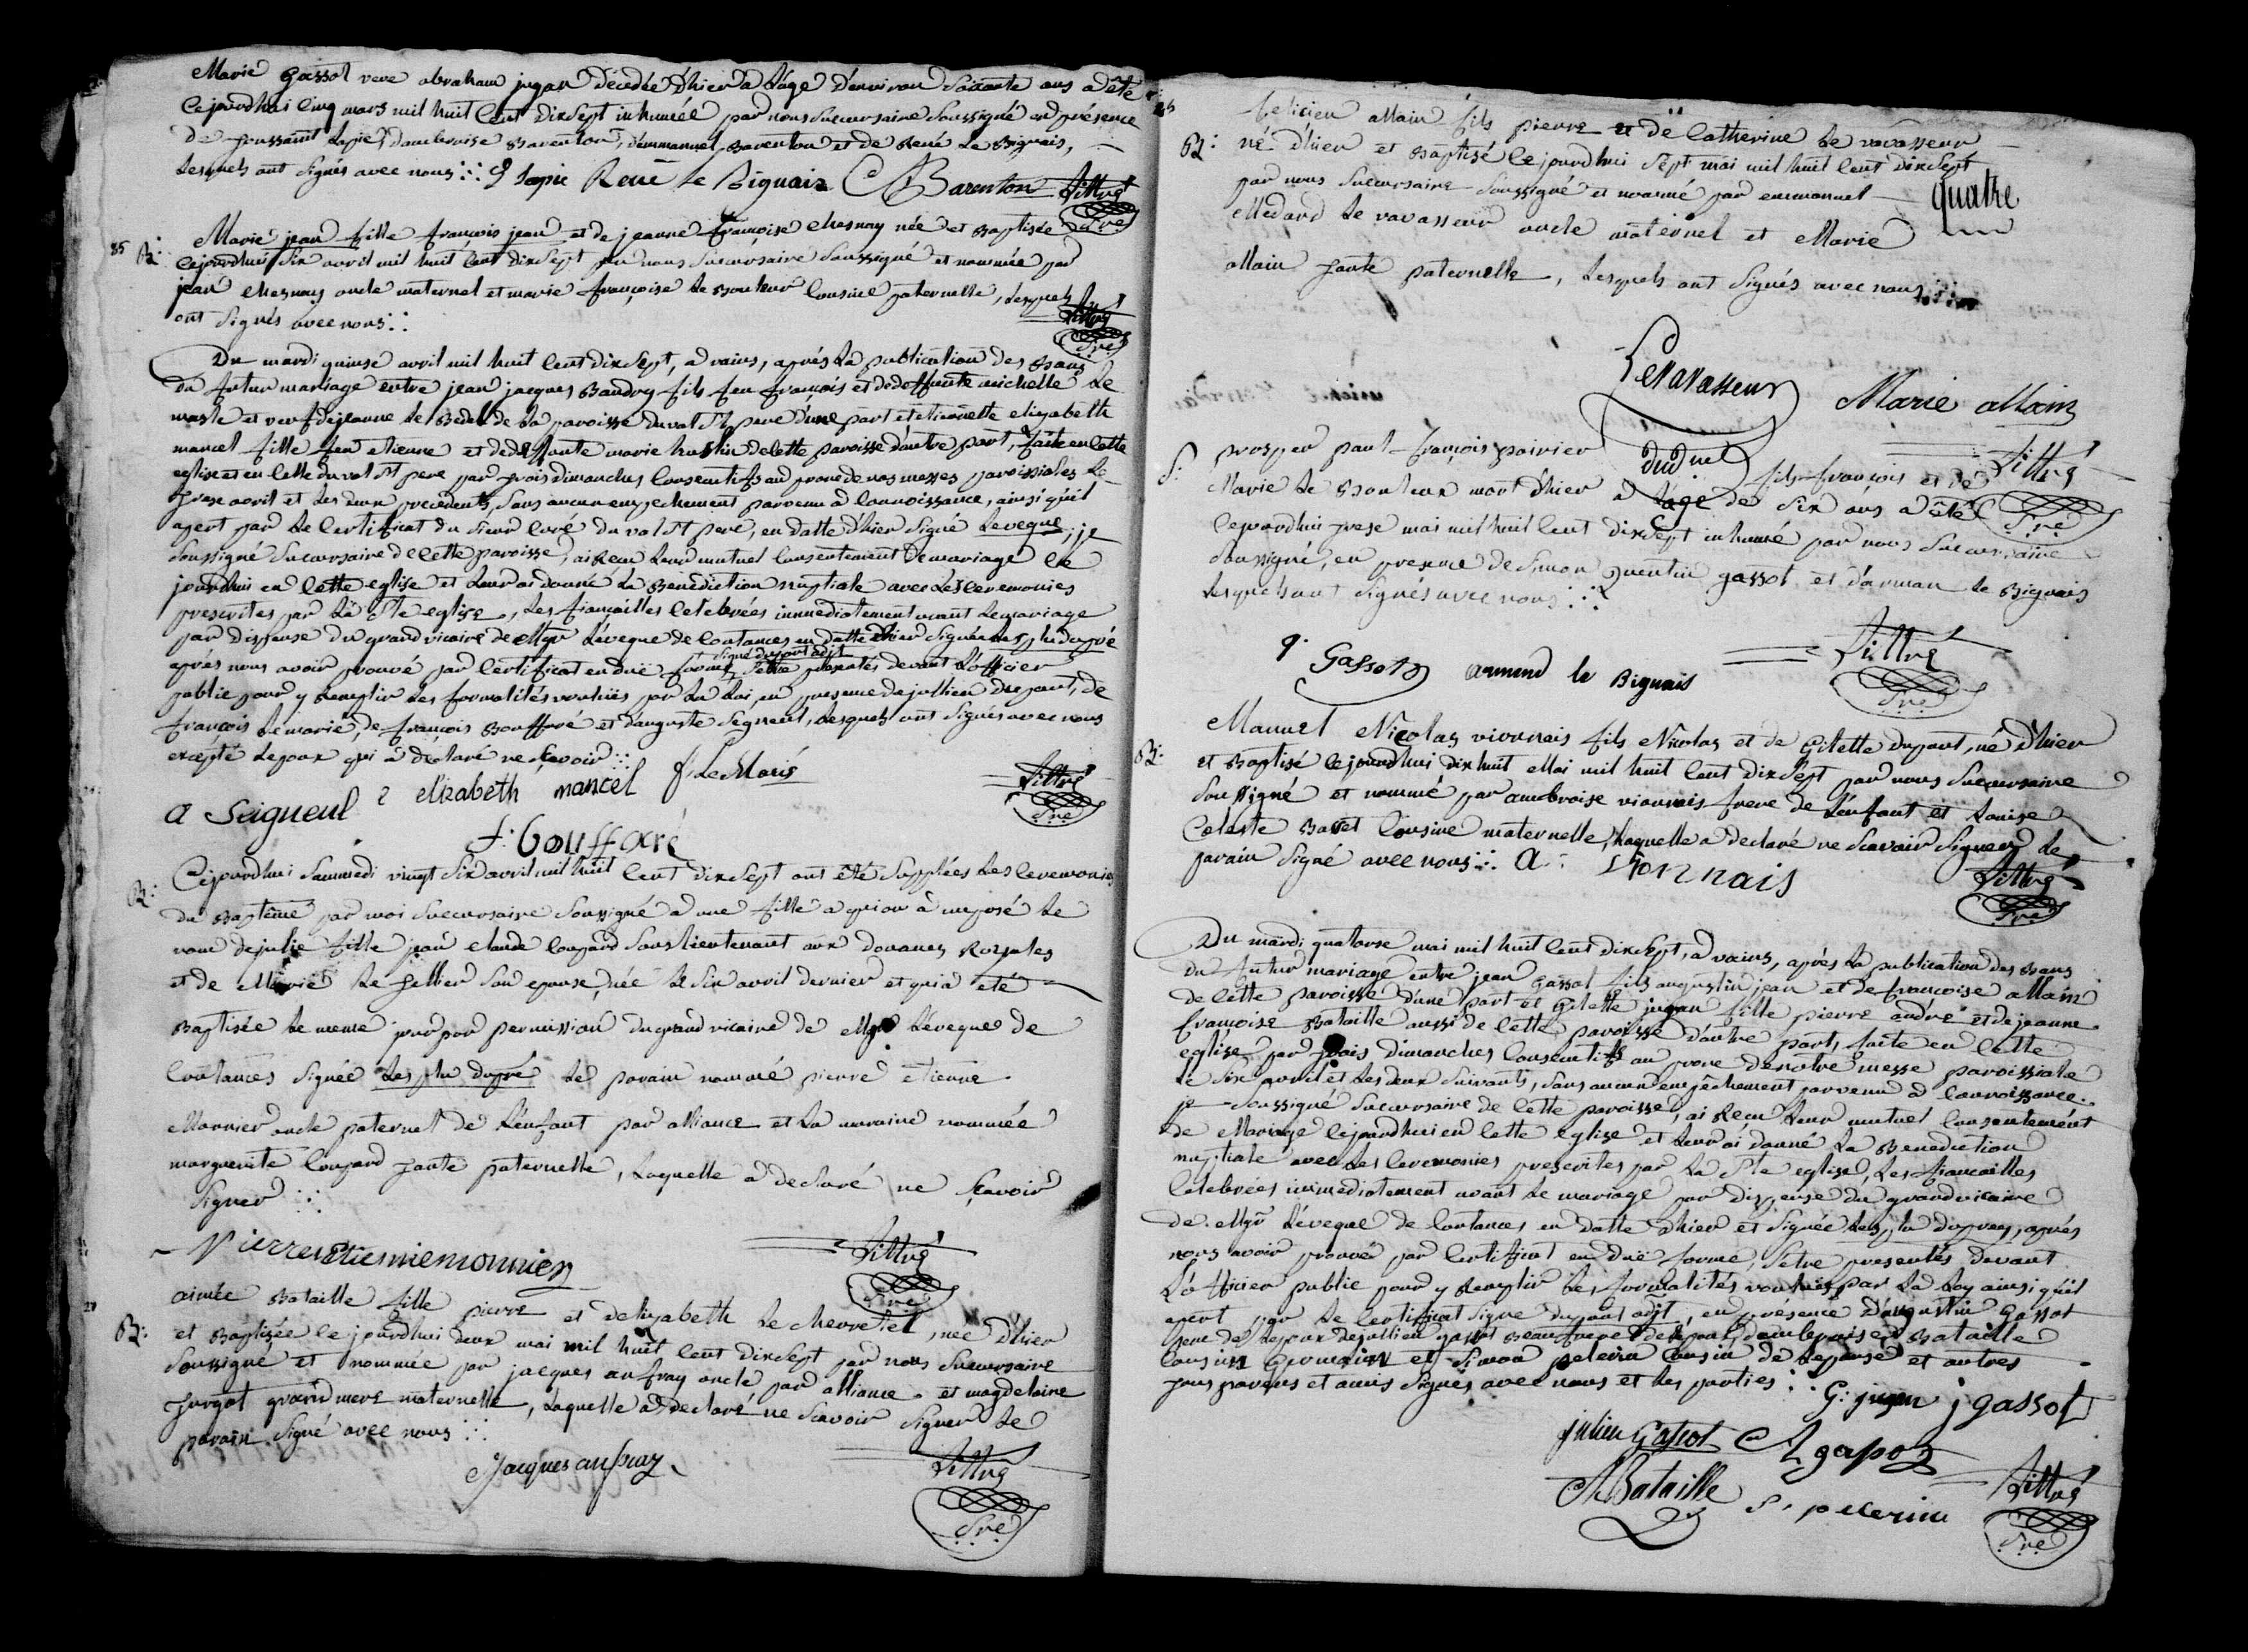 Marie Gassot veve abraham jugan décédée d'hier a l'âge d'environ Soixante ans a été
cejourdhui cinq mars mil huit cent dix Sept inhumée par nous Succursaire Soussigné en présence
de toussaint Lapie, d'ambroise Barenton, d'emmanuel Barenton et de René Le Bignais,
lesquels ont Signés avec nous
Lapie René le Bignais Barenton Littré
Sre
35 B:
Marie jean fille françois jean et de jeanne françoise chesnay née et Baptisée
cejourdhui Six avril mil huit cent dix Sept par nous Succursaire Soussigné et nommée par
jean chesnay oncle maternel et marie françoise Le Bouleux cousine paternelle, lesquels
ont Signés avec nous
Littré
Sre
Du mardi quinse avril mil huit cent dix Sept, a vains, aprés la publication des Bans
du futur mariage entre jean jacques Baudry fils feu françois et de deffunte michelle Le
masle et veuf de jeanne Le Bedel de la paroisse du val St pere d'une part et etiennette elizabeth
mancel fille feu etienne et de deffunte marie huslin de cette paroisse d'autre part, faite en cette
eglise et en celle du val St pere par trois dimanches consecutifs au prone de nos messes paroissiales le
treze avril et les deux precedents, Sans aucun empechement parvenu a connoissance, ainsi qu'il
apert par le certificat du Sieur curé du val St pere, en datte d'hier Signé Leveque, je
Soussigné Succursaire de cette paroisse, ai Recu leur mutuel consentement de mariage ce
jourdhui en cette eglise et leur ai donné la Benediction nuptiale avec les ceremonies
prescrites par la Ste eglise, les fiançailles celebrées immediatement avant le mariage
par dispense du grand vicaire de Mgr L'eveque de coutances en datte d'hier Signée Lesplu dupré
aprés nous avoir prouvé par certificat en duë forme Signé dupont adjt S'etre presentés devant L'officier
public pour y Remplir les formalités voulues par la Loi, en presence de jullien dupont, de
françois Lemarié, de françois Bouffaré et d'auguste Segneul, lesquels ont Signés avec nous
excepté Lepoux qui a déclaré ne Scavoir
a Seigneul e elizabeth mancel f LeMarié Littré
Sre
f: bouffaré
B:
Cejourdhui Samedi vingt Six avril mil huit cent dix Sept ont été Supplées les ceremonies
du Baptême par moi Succursaire Soussigné a une fille a qui on a imposé le
nom de julie fille jean claude coupard Sous lieutenant aux douanes Royales
et de Marie Le Sellier Son epouse, née le Six avril dernier et qui a été
Baptisée le meme jour par permission du grand vicaire de Mgr L'éveque de
Coutances Signée Lesplu dupré le parain nommé pierre etienne
Monnier oncle paternel de L'enfant par alliance et la maraine nommée
marguerite coupard tante paternelle, laquelle a declaré ne Scavoir
Signer
Pierre Etienne monnier Littré
Sre
27 B:
aimée Bataille fille pierre et d'elizabeth Le chevretel, née d'hier
et Baptisée cejourdhui deux mai mil huit cent dix Sept par nous Succursaire
Soussigné et nommée par jacques anfray oncle par alliance et magdelaine
turgot grand mere maternelle, laquelle a declaré ne Scavoir Signer le
parain Signé avec nous
Jacques anfray Littré
Sre
B:
felicien allain fils pierre et de Catherine Le vavasseur
né d'hier et Baptisé cejourdhui Sept mai mil huit cent dix Sept
par nous Succursaire Soussigné et nommé par emmanuel
Medard Le vavasseur oncle maternel et Marie
allain tante paternelle, lesquels ont Signés avec nous
quatre
Levavasseur Marie allain
Littré
Sre
S:
prosper paul françois poirier dudnel fils françois et de
Marie Le Bouleux mort d'hier a l'age de Six ans a été
cejourdhui treze mai mil huit cent dix Sept inhumé par nous Succursaire
Soussigné, en presence de Simon quentin gassot et d'arman Le Bignais
lesquels ont Signés avec nous
q. Gassot armend le Bignais Littré
Sre
B:
Manuel Nicolas vionnais fils Nicolas et de Gilette dupont, né d'hier
et Baptisé cejourdhui dix huit Mai mil huit cent dix Sept par nous Succursaire
Soussigné et nommé par ambroise vionnais frere de L'enfant et Louise
Celeste Basset cousine maternelle, laquelle a declaré ne Scavoir Signer le
parain Signé avec nous a: vionnais
Littré
Sre
Du mardi quatorse mai mil huit cent dix Sept, a vains, aprés la publication des Bans
du futur mariage entre jean gassot fils augustin jean et de françoise allain
de cette paroisse d'une part et Gilette jugan fille pierre andré et de jeanne
françoise Bataille aussi de cette paroisse d'autre part, faite en cette
eglise par trois dimanches consecutifs au prone de notre messe paroissiale
le Six avril et les deux Suivants, Sans aucun empêchement parvenu a connoissance.
je Soussigné Succursaire de cette paroisse, ai Recu leur mutuel consentement
de Mariage cejourdhui en cette eglise et leur ai donné la Benediction
nuptiale avec les ceremonies prescrites par la Ste eglise, les fiancailles
celebrées immediatement avant le mariage par dispense du grand vicaire
de Mgr L'éveque de coutances en datte d'hier et Signée Lesplu duprey, aprés
nous avoir prouvé par certificat en duë forme, S'etre presentés devant
L'officier public pour y Remplir les formalités voulues par la Loy ainsi qu'il
apert par le certificat Signe dupont adjt, en presence d'augustin Gassot
pere de Lepoux de jullien gassot Beaufrere de Lepoux, d'ambroise Bataille
cousin Germain et Simon pelerin cousin de Lepouse et autres
tous parens et amis Signés avec nous et les parties G: jugan j gassot
julien Gassot A gassot
A Bataille S. pelerin Littré
Sre